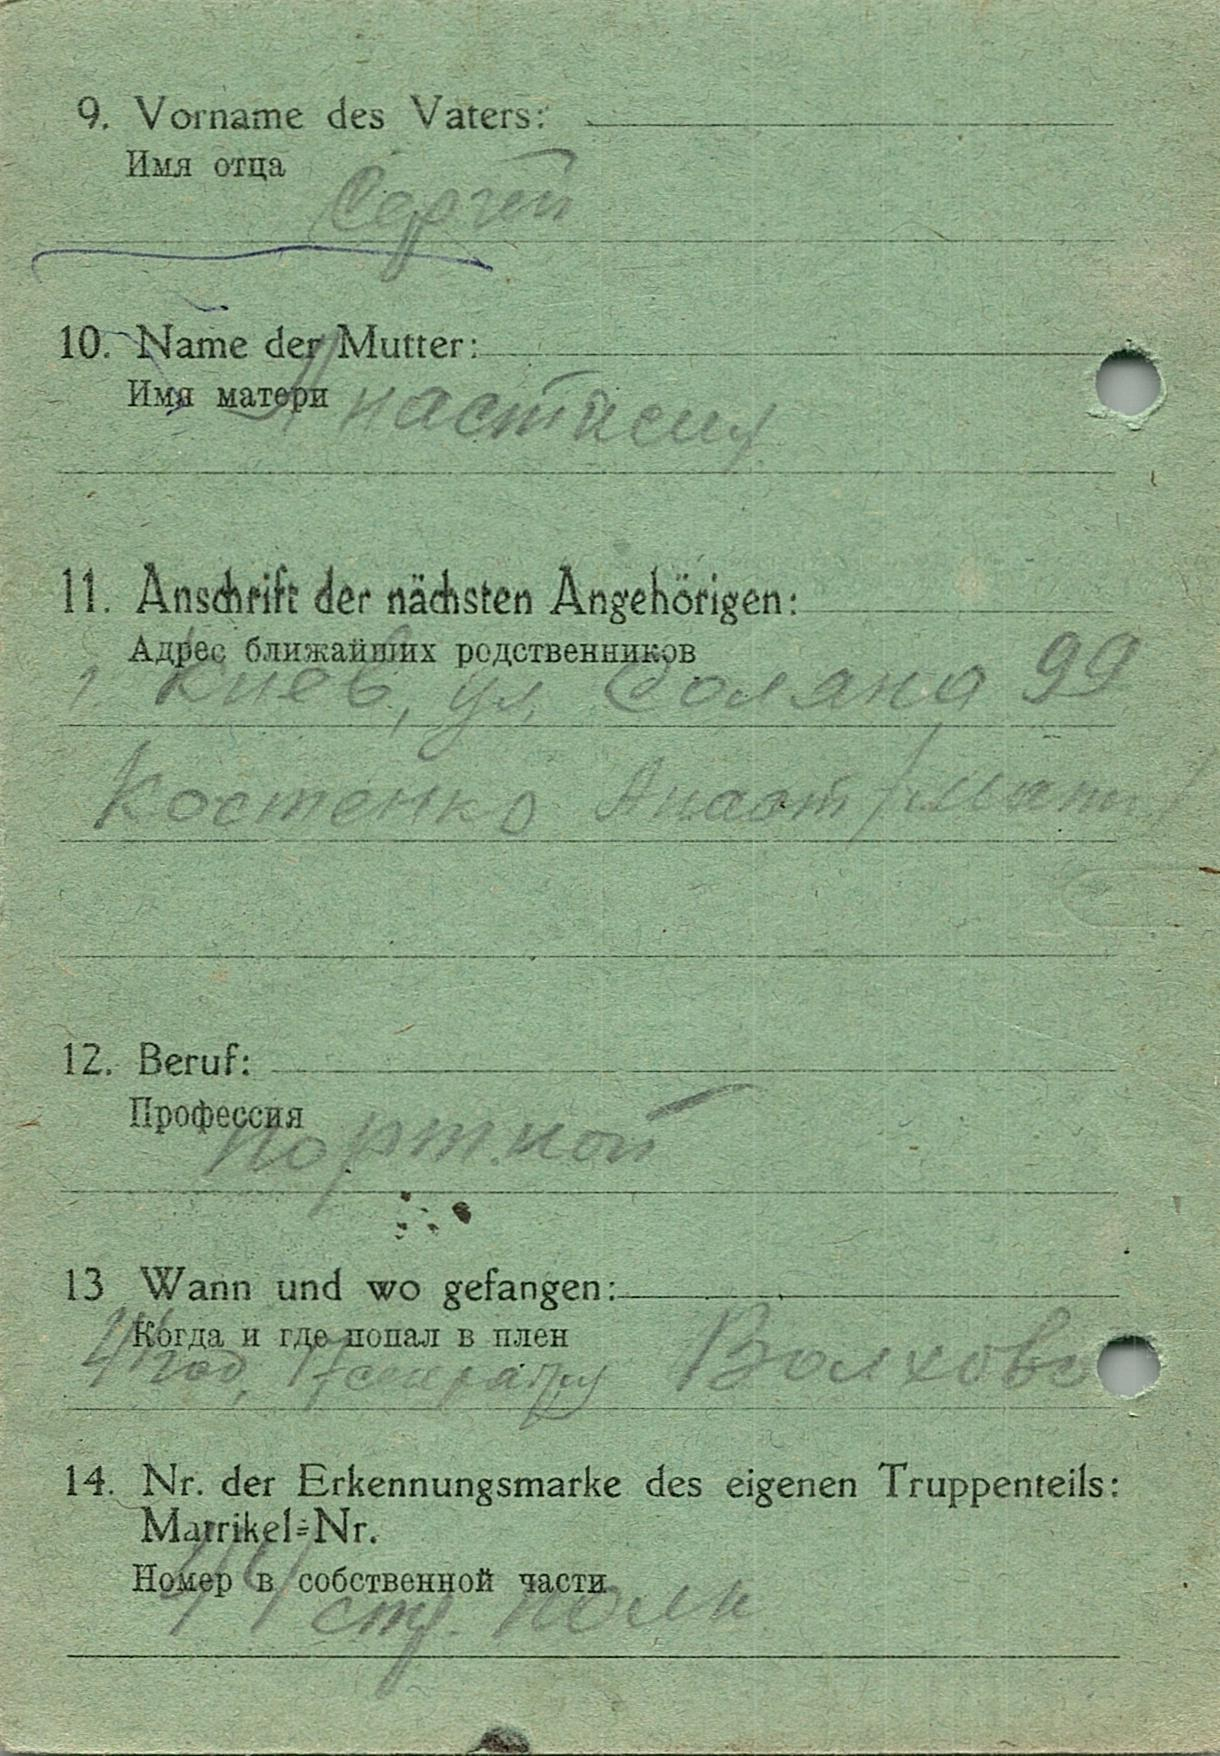 9. Vorname des Vaters:
Имя отца
Сергей
10. Name der Mutter:
Имя матери
Анастасия
11. Anschrift der nächsten Angehörigen:
Адрес ближайших родственников
г. Киев, ул. Соляна 99
Костенко Анаст
12. Beruf:
Профессия
Портной
13 Wann und wo gefangen:
Когда и где попал в плен
год, Волхово
14. Nr. der Erkennungsmarke des eigenen Truppenteils:
Matrikel=Nr.
Номер в собственной части
44 стр. полк